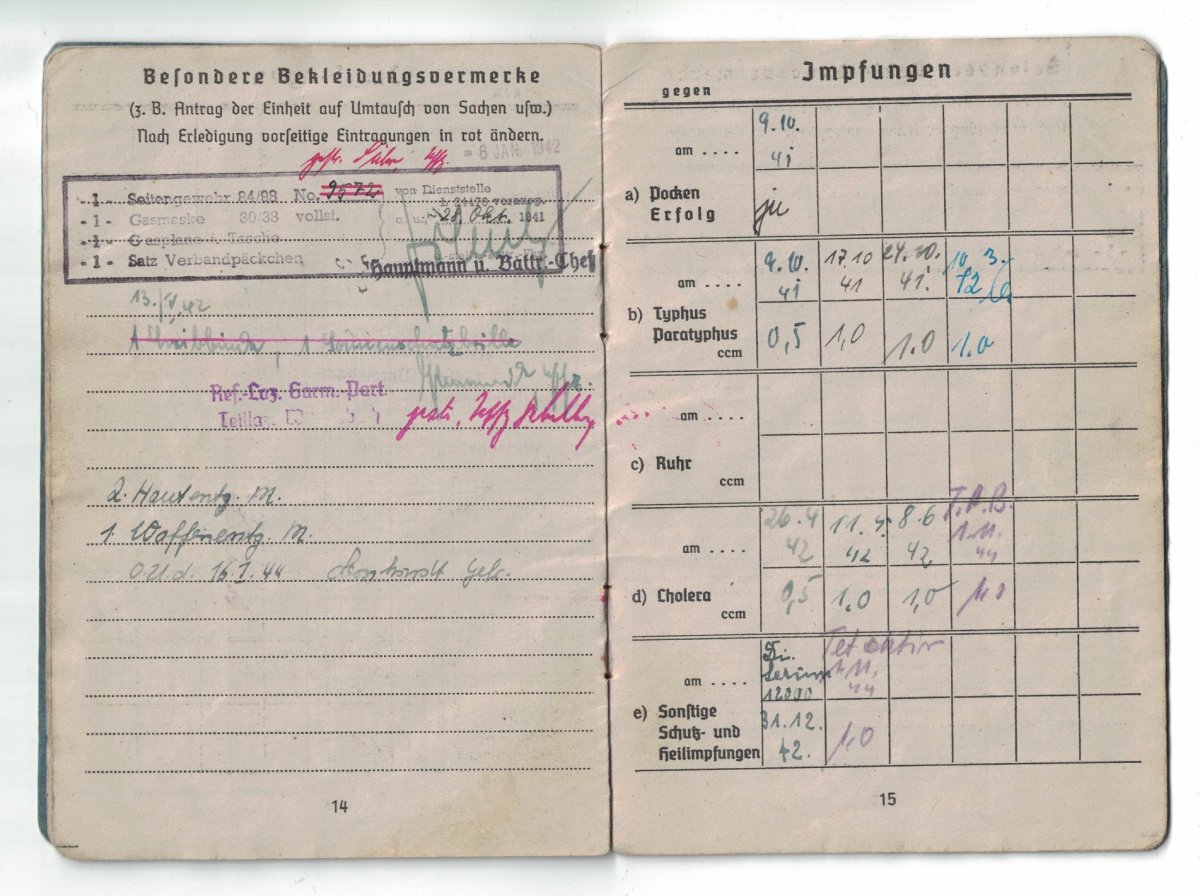 Besondere Bekleidungsvermerke
(z. B. Antrag der Einheit auf Umtausch von Sachen usw.)
Nach Erledigung vorseitige Eintragungen in rot ändern.
- 6 JAN. 1942
- 1 - Seitengewehr 84/98 No. 9572 von Dienststelle
- 1 - Gasmaske 30/38 vollst. 28. Okt. 1941
- 1 - Gasplane i. Tasche
- 1 - Satz Verbandpäckchen
Hauptmann u. Battr.-Chef
13./4.42
1 Leibbinde, 1 Sonnenschutzbrille
Res.-Laz. Garm.-Part
Teillaz.
gestr. Uffz
2. Hautentg. M.
1. Waffenentg. M.
O.U.d. 16.7.44 Gefr.
14
Impfungen
gegen
am .... 9.10. 41
a) Pocken
Erfolg ja
am .... 9.10. 41 17.10 41 24.10. 41. 10.3. 42
b) Typhus
Paratyphus
ccm 0,5 1,0 1.0 1.0
am ....
c) Ruhr
ccm
am .... 26.4 42 11.5. 42 8.6 42 T.A.B. 1.11. 44
d) Cholera
ccm 0,5 1,0 1,0 1,0
am .... Di. Serum 12000 Tet aktiv 1.11. 44
e) Sonstige
Schutz- und
Heilimpfungen 31.12. 42. 1,0
15